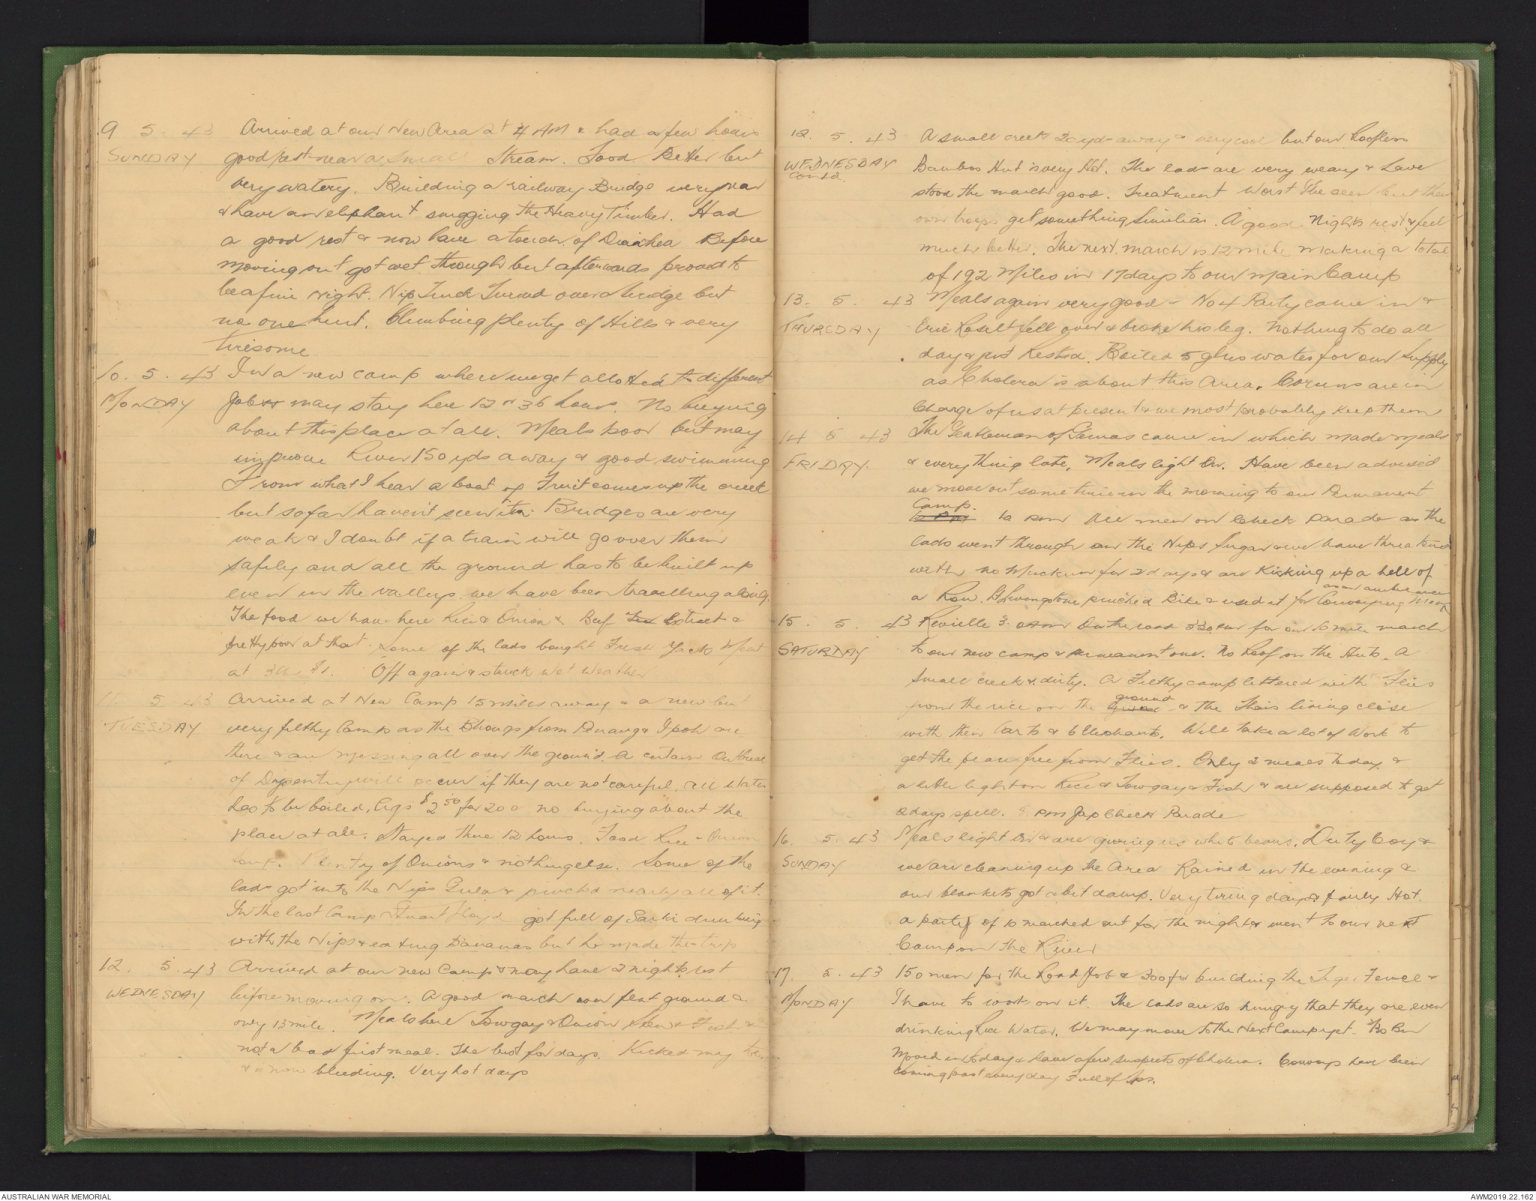 9 5. 43 Arrived at our New Area at 4 AM & had a few hours
SUNDAY good rest near a small Stream. Food Better but
very watery. Building a railway Bridge very near
& have an elephant snigging the Heavy Timber. Had
a good rest & now have a touch of Diarrhea Before
moving out got wet through but afterwards proved to
be a fine night. Nip Truck Turned over a bridge but
no one hurt. Climbing plenty of Hills & very
tiresome
10. 5. 43 In a new camp where we get allotted to different
MONDAY Jobs & may stay here 12 or 36 hours. No buying
about this place at all. Meals poor but may
improve River 150 yds away & good swimming
From what I hear a boat of Fruit comes up the creek
but so far haven't seen it. Bridges are very
weak & I doubt if a train will go over them
safely and all the ground has to be built up
even in the valleys we have been travelling along
The food we have here Rice & Onion & Beef Extract &
pretty poor at that. Some of the lads bought Fresh
at Off again & struck wet weather
11 5 43 Arrived at New Camp 15 miles away & a new but
TUESDAY very filthy Camp as the from Penang & Ipoh are
there & are messing all over the ground. A certain Outbreak
of Dysentry will occur if they are not careful, all water
has to be boiled, Cigs $2 50 for 200 no buying about the
place at all. Stayed there 12 hours. Food Rice & Onion
Plenty of Onions & nothing else. Some of the
lads got into the Nips & pinched nearly all of it.
In the last Camp Stuart Lloyd got full of Saki drinking
with the Nips & eating Bananas but he made the trip
12. 5. 43 Arrived at our new Camp & may have 2 nights rest
WEDNESDAY before moving on. A good march over flat ground &
only 13 mile. Meals here Towgay & Onion Stew &
not a bad first meal. The best for days. Kicked my toe
& is now bleeding. Very hot days
12. 5. 43 A small creek 20 yds away & very cool but our Roofless
WEDNESDAY Bamboo Hut is very Hot. The lads are very weary & have
contd stood the march good. Treatment Worst I've seen but their
own troops get something similar. A good Nights rest & feel
much better. The next march is 12 mile making a total
of 192 Miles in 17 days to our main Camp
13. 5. 43 Meals again very good & No 4 Party came in &
THURSDAY Eric fell over & broke his leg. Nothing to do all
day & just Rested. Boiled 5 glns water for our supply
as Cholera is about this Area. are in
charge of us at present & we most probably keep them
14 5 43 The Gentleman of came in which made meals
FRIDAY. & everything late. Meals light On. Have been advised
we move out sometime in the morning to our Permanent
Camp.
10 pm All men on Check Parade as the
lads went through the Nips Sugar & we have threatened
with no for 2 days & are kicking up a hell of
a Row. pinched Bike & used it for Conveying
15. 5. 43 Reveille 3 On the road 3 30 for our 6 mile march
SATURDAY to our new camp & permanent one. No Roof on the Huts. A
small creek & dirty. A Filthy camp littered with Flies
ground
from the rice on the & the Thais living close
with their Carts & Elephants. Will take a lot of Work to
get the place free from Flies. Only 2 meals today &
a little light on Rice & Towgay & Fish & are supposed to get
2 days spell. pm Jap Check Parade
16. 5. 43 Meals light On & are giving us white beans. Duty Coy &
SUNDAY we are cleaning up the Area Rained in the evening &
our blankets got a bit damp. Very tiring day & fairly Hot
a party of 10 marched out for the night & went to our next
Camp on the River
17. 5. 43 150 men for the Road Job & 200 for building the Fence &
MONDAY I have to work on it. The lads are so hungry that they are even
drinking Rice Water. We may move to the Next Camp yet.
Moved in today & have a few suspects of Cholera. Convoys have been
coming past every day Full of
AUSTRALIAN WAR MEMORIAL
AWM2019.22.162